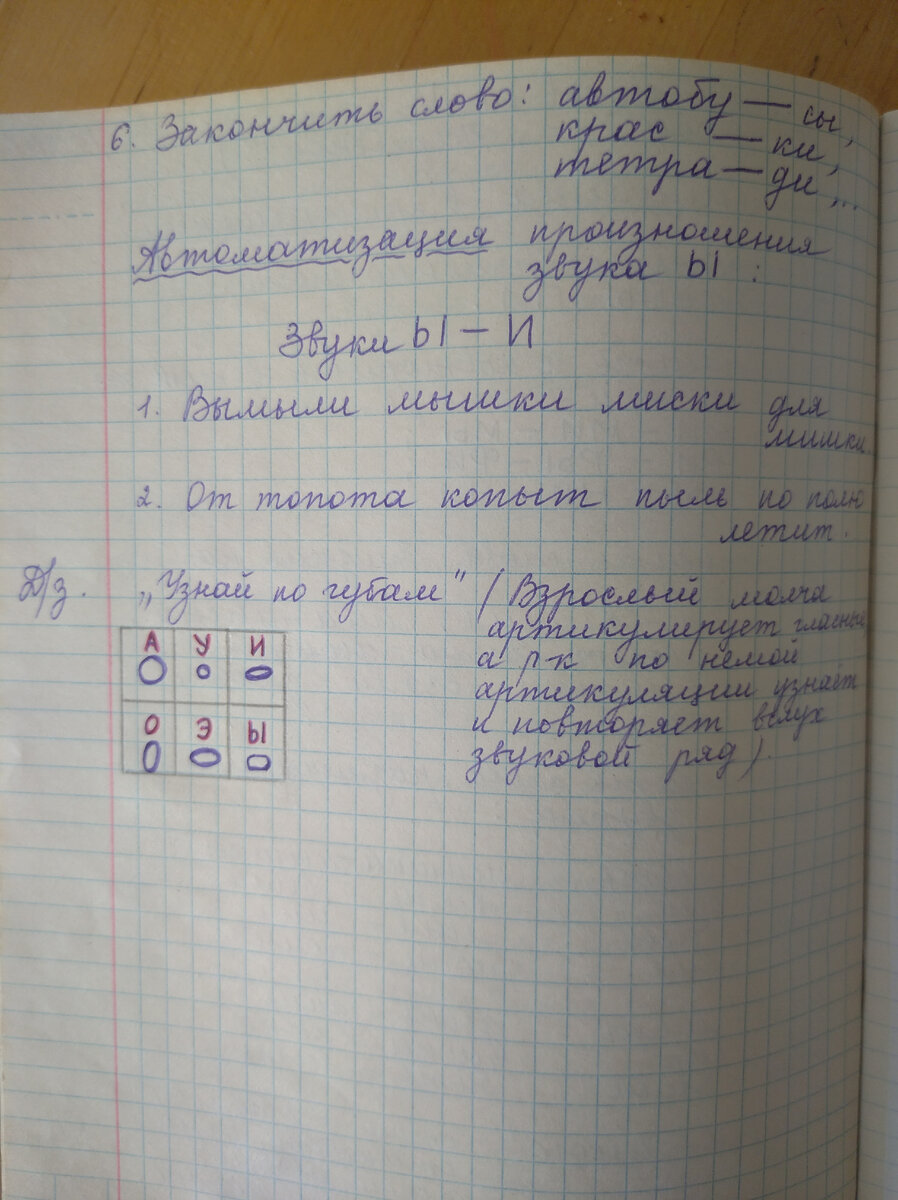 6. Закончить слово: автобу — сы,
крас — ки,
тетра — ди,...
Автоматизация произношения
звука Ы :
Звуки Ы — И
1. Вымыли мышки миски для
мишки.
2. От топота копыт пыль по полю
летит.
Д/з. „Узнай по губам" (Взрослый молча
артикулирует гласные
а р-к по немой
артикуляции узнаёт
и повторяет вслух
звуковой ряд).
А У И
О Э Ы